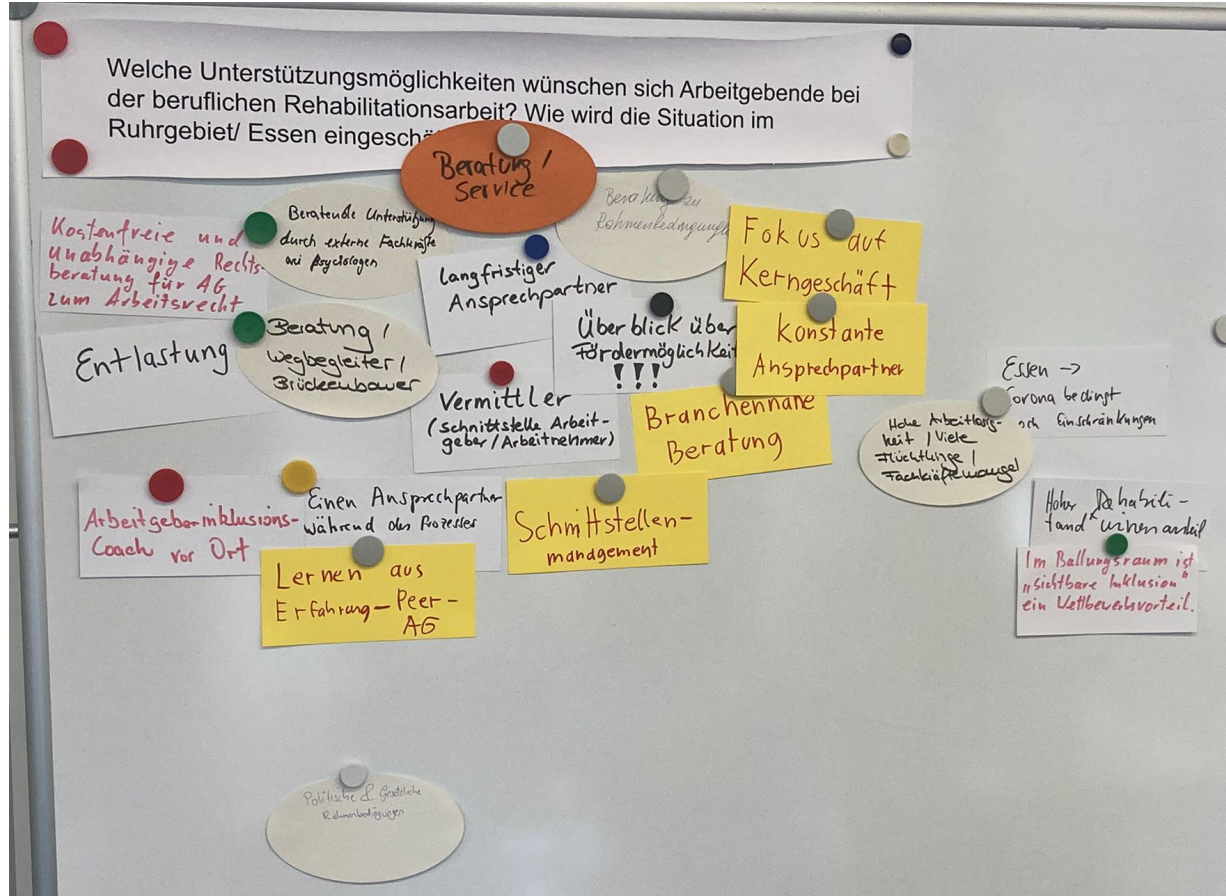 Welche Unterstützungsmöglichkeiten wünschen sich Arbeitgebende bei
der beruflichen Rehabilitationsarbeit? Wie wird die Situation im
Ruhrgebiet/ Essen
Beratung /
Service
Kostenfreie und
unabhängige Rechts-
beratung für AG
zum Arbeitsrecht
Beratende Unterstützung
durch externe Fachkräfte
Psychologen
Langfristiger
Ansprechpartner
Beratung zu
Fokus auf
Kerngeschäft
Entlastung
Beratung /
Wegbegleiter /
Brückenbauer
Überblick über
Fördermöglichkeit
!!!
Konstante
Ansprechpartner
Vermittler
(Schnittstelle Arbeit-
geber/Arbeitnehmer)
Branchennahe
Beratung
Essen →
Corona bedingt
noch Einschränkungen
Hohe Arbeitslosig-
keit / Viele
Flüchtlinge /
Fachkräftemangel
Arbeitgeberinklusions-
Coach vor Ort
Einen Ansprechpartner
während des Prozesses
Schnittstellen-
management
Lernen aus
Erfahrung – Peer-
AG
Hoher
Im Ballungsraum ist
„sichtbare Inklusion"
ein Wettbewerbsvorteil.
Politische & Gesetzliche
Rahmenbedingungen